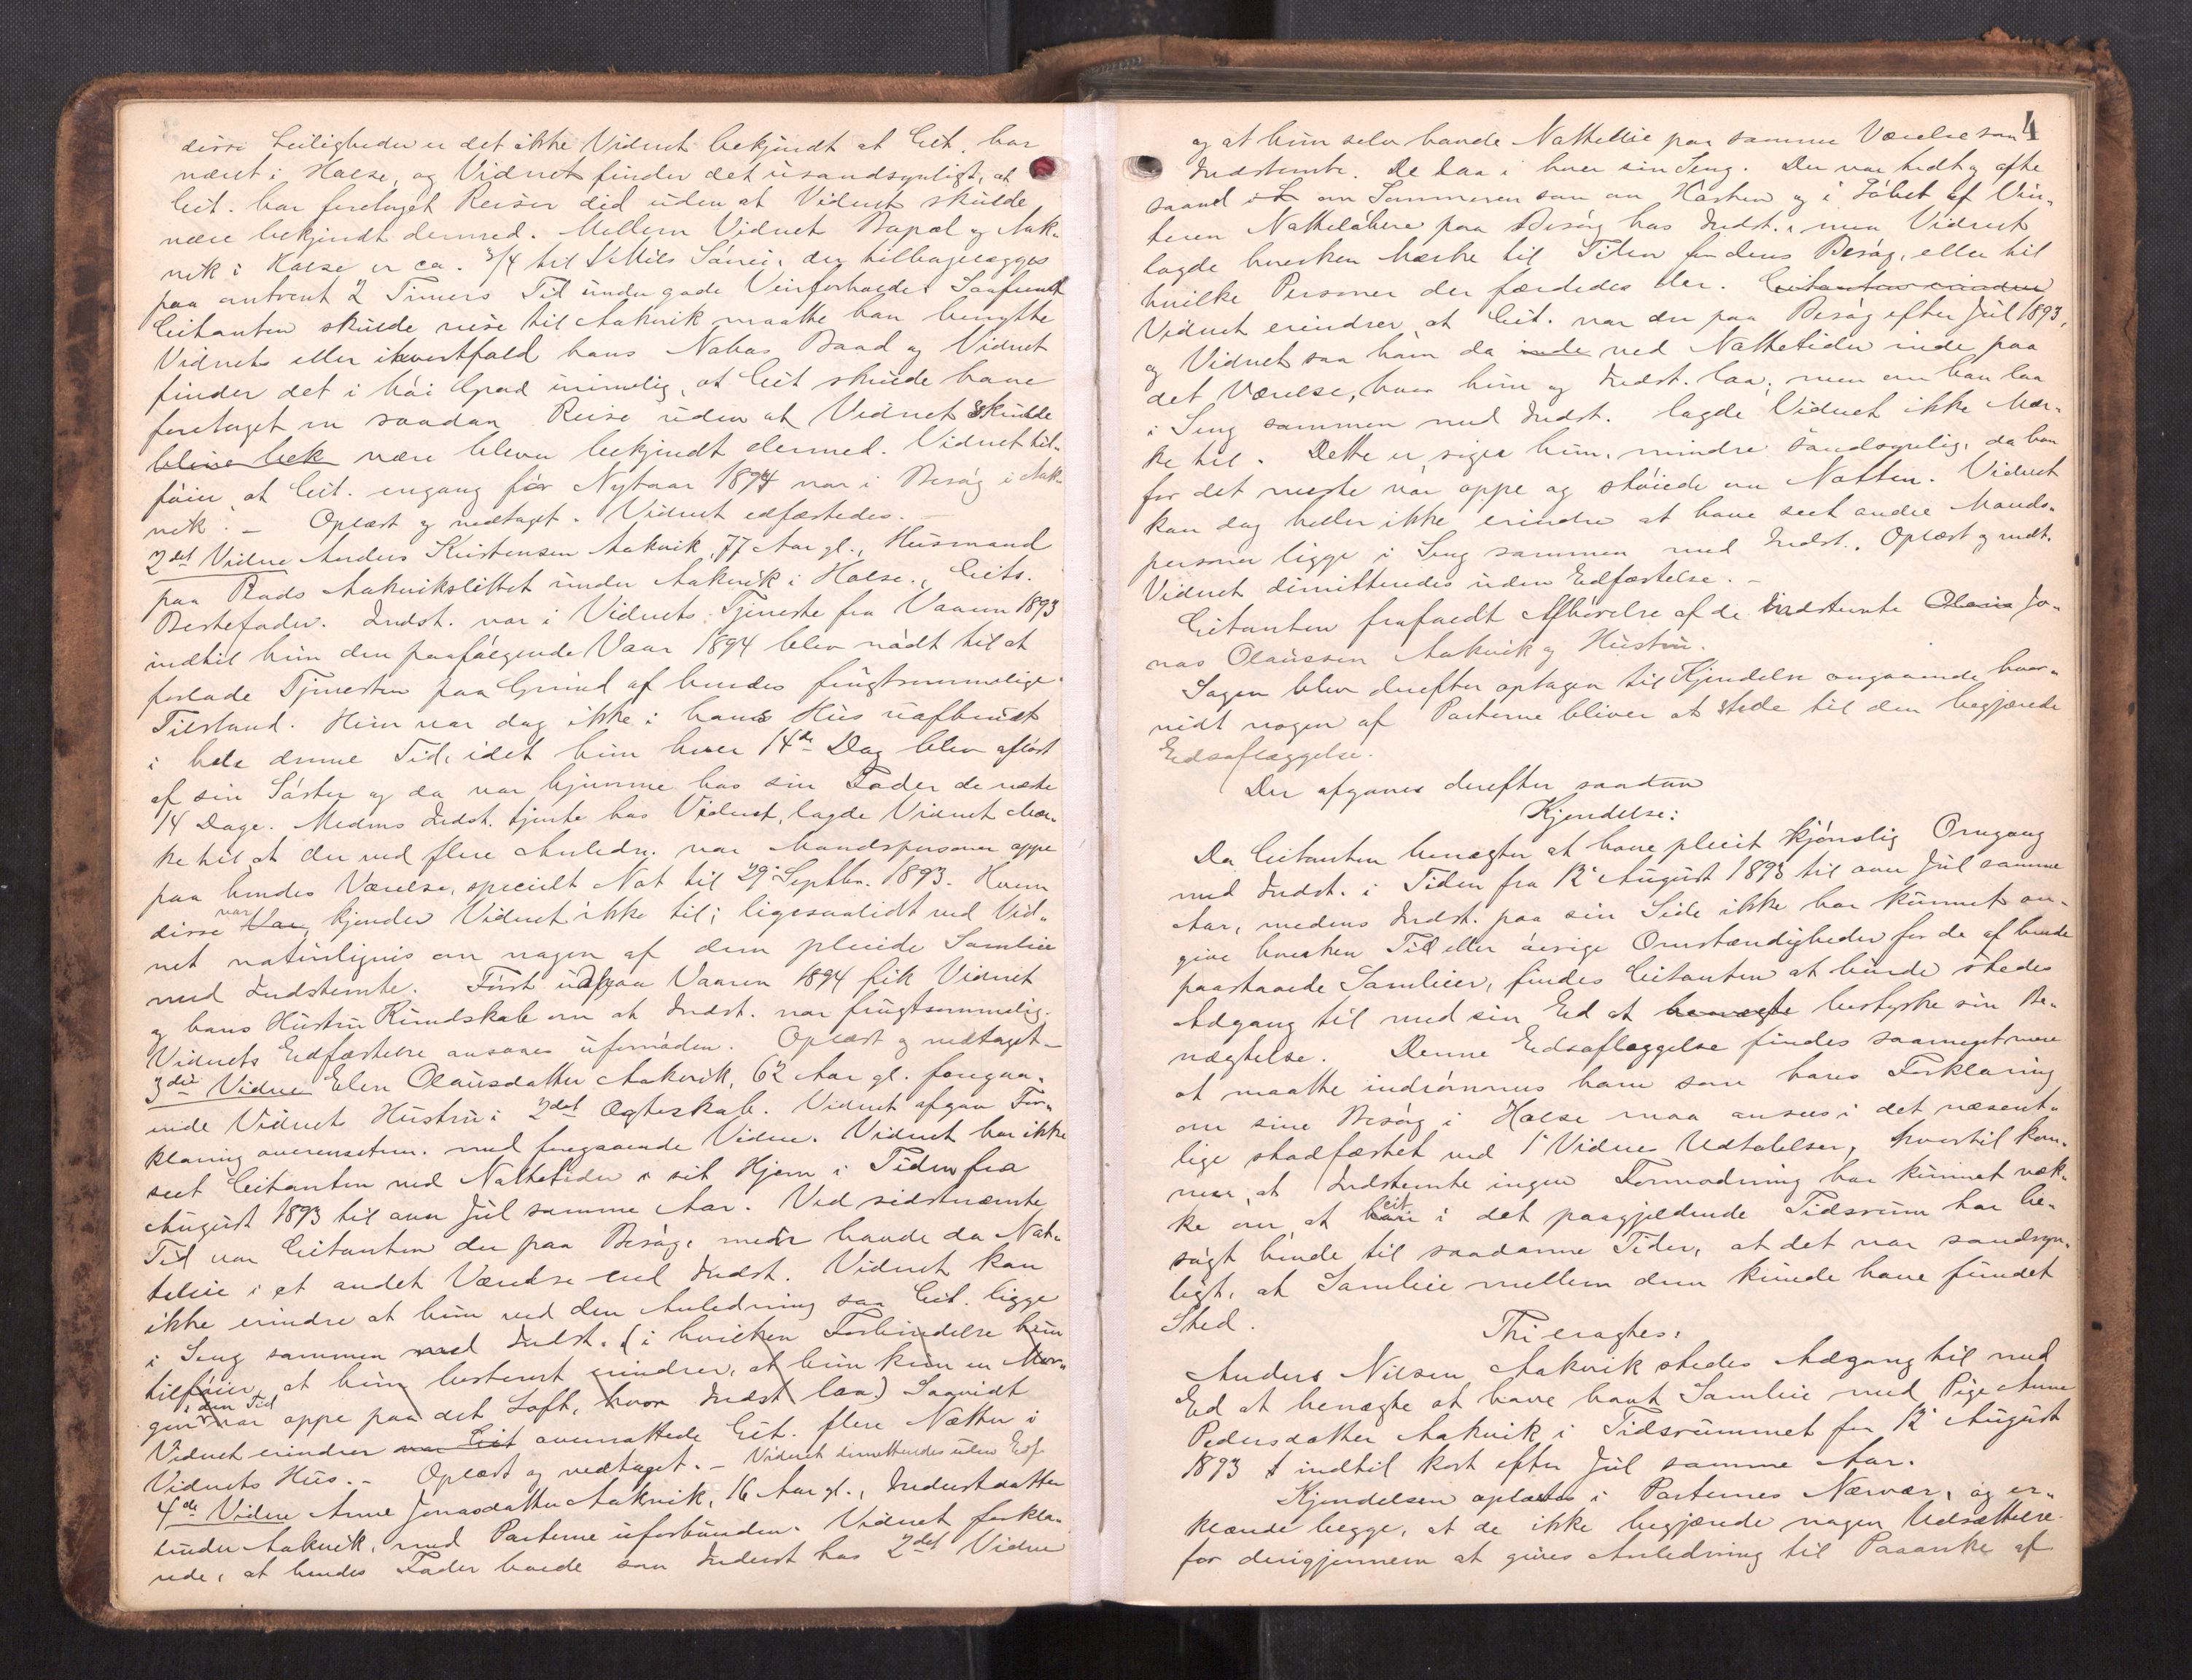 disse Leiligheder er det ikke Vidnet bekjendt at Cit. har
været i Halse, og Vidnet finder det usandsynligt, at
Cit. har foretaget Reiser did uden at Vidnet skulde
være bekjendt dermed. Mellem Vidnets Bopæl og Aak-
vik i Halse er ca. 3/4 til 1 Miils Søvei, der tilbagelægges
paa omtrent 2 Timers Tid under gode Veirforholde. Saafremt
Citanten skulde reise til Aakvik maatte han benytte
Vidnets eller ihvertfald hans Nabos Baad og Vidnet
finder det i høi Grad urimelig, at Cit skulde have
foretaget en saadan Reise uden at Vidnet skulde
blive bek være bleven bekjendt dermed. Vidnet til-
føier, at Cit. engang før Nytaar 1894 var i Besøg i Aak-
vik. – Oplæst og vedtaget. Vidnet edfæstedes. –
2det Vidne Anders Kristensen Aakvik, 77 Aar gl., Husmand
paa Plads Aakvikslettet under Aakvik i Halse, Cits.
Bestefader. Indst. var i Vidnets Tjeneste fra Vaaren 1893
indtil hun den paafølgende Vaar 1894 blev nødt til at
forlade Tjenesten paa Grund af hendes frugtsommelige
Tilstand. Hun var dog ikke i hans Hus uafbrudt
i hele denne Tid, idet hun hver 14de Dag blev afløst
af sin Søster og da var hjemme hos sin Fader de næste
14 Dage. Medens Indst. tjente hos Vidnet, lagde Vidnet Mær-
ke til, at der ved flere Anledn. var Mandspersoner oppe
paa hendes Værelse, specielt Nat til 29. Septbr. 1893. Hvem
disse Var var, kjender Vidnet ikke til; ligesaalidt ved Vid-
net naturligvis om nogen af dem pleiede Samleie
med Indstevnte. Først udpaa Vaaren 1894 fik Vidnet
og hans Hustru Kundskab om at Indst. var frugtsommelig.
Vidnets Edfæstelse ansaaes ufornøden. Oplæst og vedtaget –
3die Vidne Elen Olausdatter Aakvik, 62 Aar gl. foregaa-
ende Vidnets Hustru i 2det Ægteskab. Vidnet afgav For-
klaring overensstem. med foregaaende Vidne. Vidnet har ikke
seet Citanten ved Nattetider i sit Hjem i Tiden fra
August 1893 til over Jul samme Aar. Ved sidstnævnte
Tid var Citanten der paa Besøg, men havde da Nat-
teleie i et andet Værelse end Indst. Vidnet kan
ikke erindre at hun ved den Anledning saa Cit. ligge
i Seng sammen med Indst. (i hvilken Forbindelse hun
tilføier, at hun bestemt erindrer, at hun kun en Mor-
gen i den Tid var oppe paa det Loft, hvor Indst laa.) Saavidt
Vidnet erindrer var Cit overnattede Cit. flere Nætter i
Vidnets Hus. – Oplæst og vedtaget. – Vidnet dimitteredes uden Edf.
4de Vidne Anne Jonasdatter Aakvik, 16 Aar gl., Inderstdatter
under Aakvik, med Parterne uforbunden. Vidnet forkla-
rede, at hendes Fader boede som Inderst hos 2det Vidne
4
og at hun selv havde Natteleie paa samme Værelse som
Indstevnte. De laa i hver sin Seng. Der var tidt og ofte
saavel i L om Sommeren som om Høsten og i Løbet af Vin-
teren Natteløbere paa Besøg hos Indst., men Vidnet
lagde hverken Mærke til Tiden for deres Besøg, eller til
hvilke Personer der færdedes der. Citanten erindrer
Vidnet erindrer, at Cit. var der paa Besøg efter Jul 1893,
og Vidnet saa ham da inde ved Nattetider inde paa
det Værelse, hvor hun og Indst. laa; men om han laa
i Seng sammen med Indst. lagde Vidnet ikke Mær-
ke til. Dette er, siger hun, mindre sandsynlig, da han
for det meste var oppe og støiede om Natten. Vidnet
kan dog heller ikke erindre at have seet andre Mands-
personer ligge i Seng sammen med Indst. Oplæst og vedt.
Vidnet dimitteredes uden Edfæstelse. –
Citanten frafaldt Afhørelse af de indstevnte Olaus Jo-
nas Olaussen Aakvik og Hustru.
Sagen blev derefter optagen til Kjendelse angaaende hvor-
vidt nogen af Parterne bliver at stede til den begjærede
Edsaflæggelse.
Der afgaves derefter saadan
Kjendelse:
Da Citanten benægter at have pleiet kjønslig Omgang
med Indst. i Tiden fra 12. August 1893 til over Jul samme
Aar, medens Indst. paa sin Side ikke har kunnet an-
give hverken Tid eller øvrige Omstændigheder for de af hende
paastaaede Samleier, findes Citanten at burde stedes
Adgang til med sin Ed at benægte bestyrke sin Be-
nægtelse. Denne Edsaflæggelse findes saameget mere
at maatte indrømmes ham som hans Forklaring
om sine Besøg i Halse maa ansees i det væsent-
lige stadfæstet ved 1ste Vidnes Udtalelser, hvortil kom-
mer, at Indstevnte ingen Formodning har kunnet væk-
ke om, at han cit. i det paagjældende Tidsrum har be-
søgt hende til saadanne Tider, at det var sandsyn-
ligt, at Samleie mellem dem kunde have fundet
Sted.
Thi eragtes:
Anders Nilsen Aakvik stedes Adgang til med
Ed at benægte at have havt Samleie med Pige Anne
Pedersdatter Aakvik i Tidsrummet fra 12. August
1893 t indtil kort efter Jul samme Aar.
Kjendelsen oplæstes i Parternes Nærvær, og er-
klærede begge, at de ikke begjærede nogen Udsættelse
for derigjennem at gives Anledning til Paaanke af